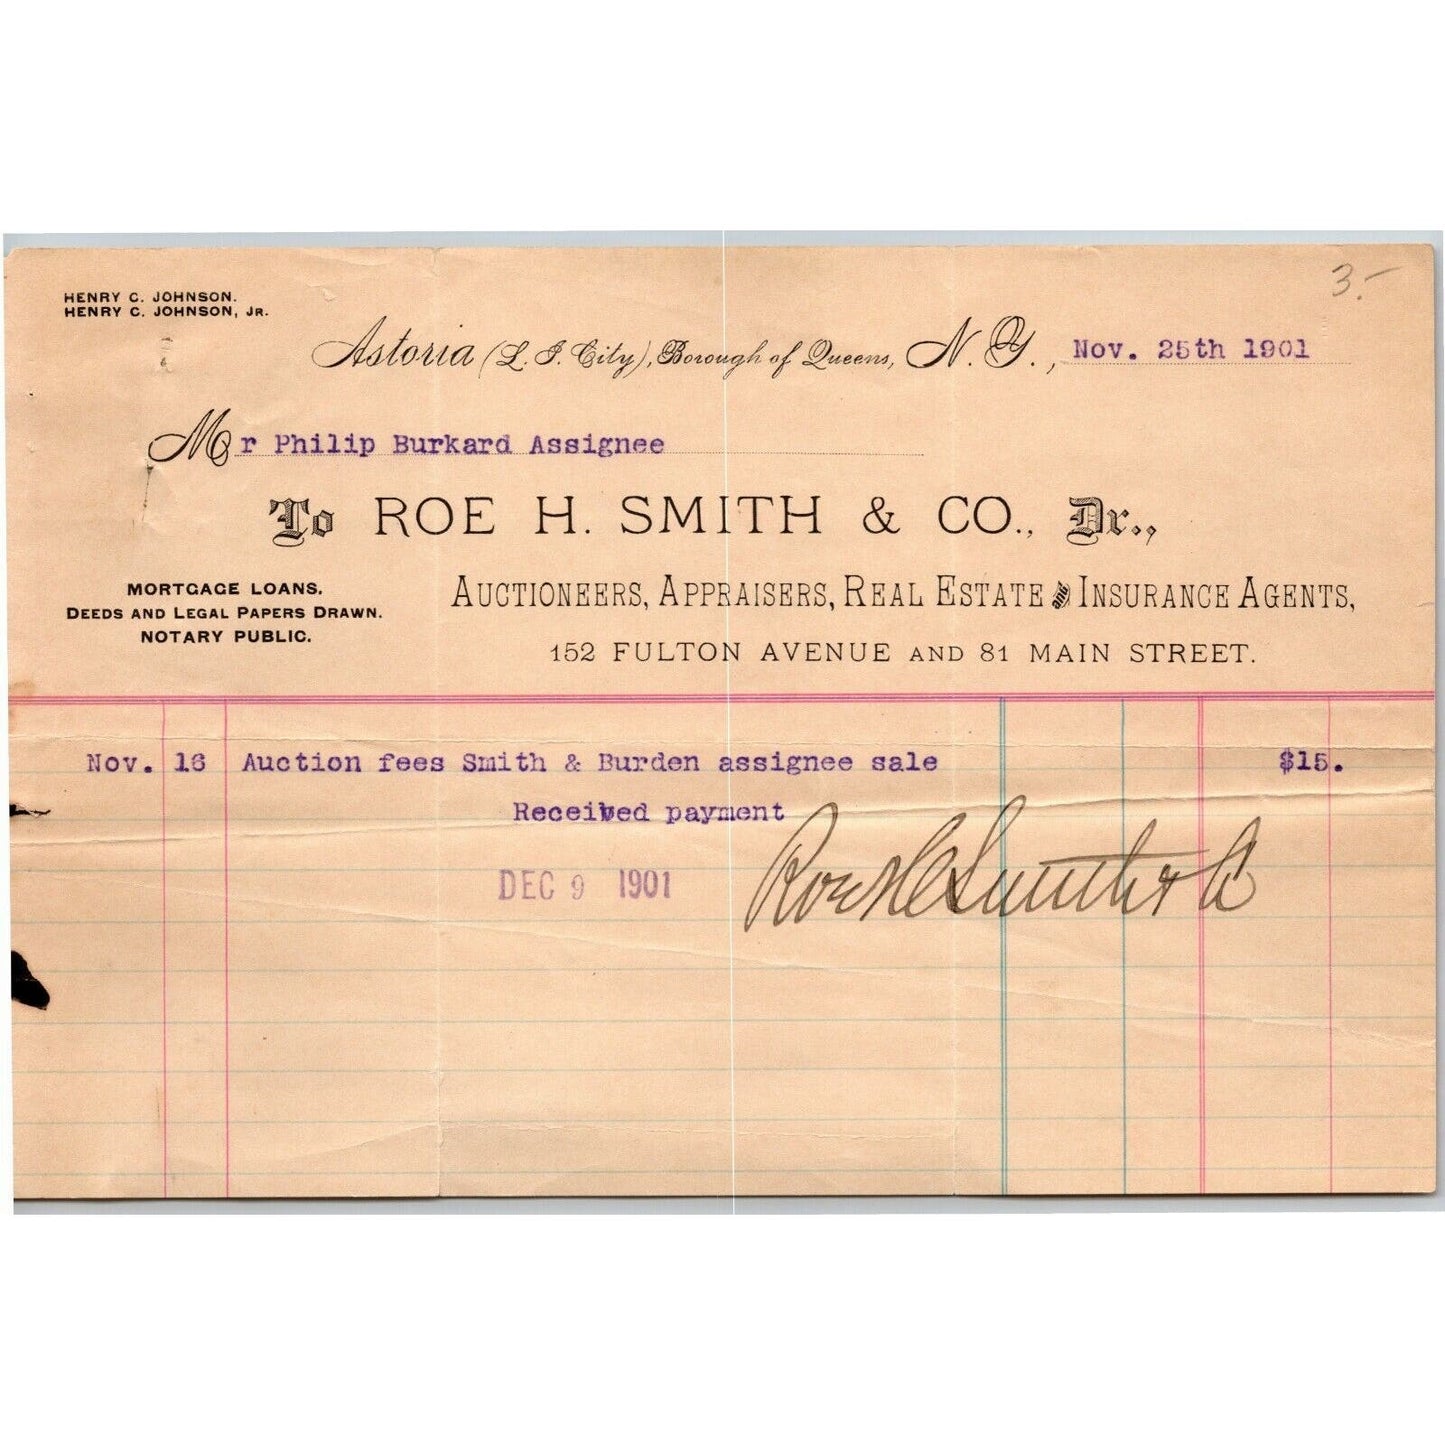 3.-
HENRY C. JOHNSON.
HENRY C. JOHNSON, JR.
Astoria (L. I. City), Borough of Queens, N. Y., Nov. 25th 1901
Mr Philip Burkard Assignee
To ROE H. SMITH & CO., Dr.,
MORTGAGE LOANS.
DEEDS AND LEGAL PAPERS DRAWN.
NOTARY PUBLIC.
AUCTIONEERS, APPRAISERS, REAL ESTATE AND INSURANCE AGENTS,
152 FULTON AVENUE AND 81 MAIN STREET.
Nov. 16 Auction fees Smith & Burden assignee sale $15.
Received payment
DEC 9 1901
Roe H Smith & Co